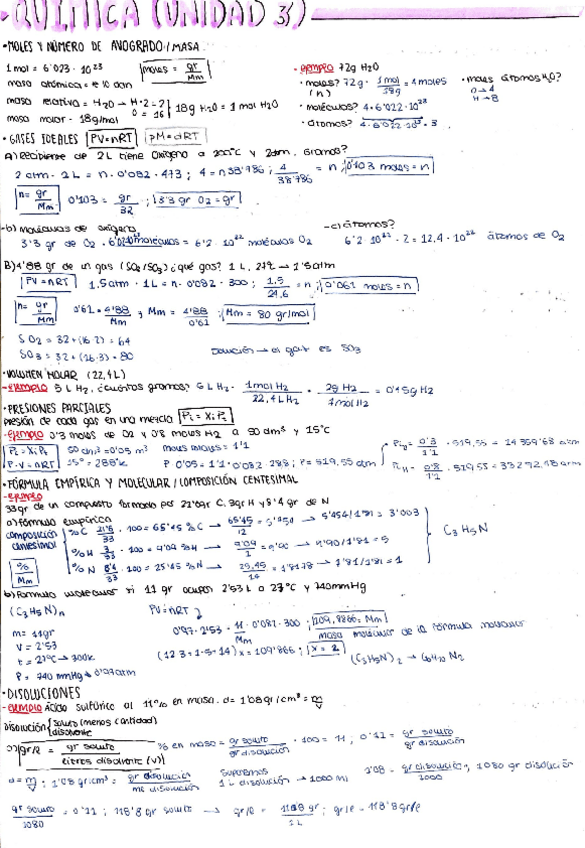 QUÍMICA (UNIDAD 3)
• MOLES Y NÚMERO DE AVOGRADO / MASA
1 mol = 6'023 · 10²³ moles = gr/Mm
masa atómica =
masa relativa = H₂O → H·2=2 O=16 18g H₂O = 1 mol H₂O
masa molar - 18g/mol
- ejemplo 72g H₂O
• moles? 72g · 1mol/18g = 4moles
(n)
• moléculas? 4·6'022·10²³
• átomos? 4·6'022·10²³·3
• moles átomos H₂O?
O→4
H→8
• GASES IDEALES PV=nRT PM=dRT
A) Recipiente de 2L tiene oxígeno a 200°C y 2atm. Gramos?
2 atm · 2L = n · 0'082 · 473; 4 = n 38'786; 4/38'786 = n; 0'103 moles = n
n = gr/Mm 0'103 = gr/32; 3'3 gr O₂ = gr
-b) moléculas de oxígeno
3'3 gr de O₂ = 6'2 · 10²² moléculas O₂
-c) átomos?
6'2 · 10²² · 2 = 12,4 · 10²² átomos de O₂
B) 4'88 gr de un gas (SO₂/SO₃) ¿qué gas? 1L, 27°C → 1'5atm
PV=nRT 1,5atm · 1L = n · 0'082 · 300; 1.5/24,6 = n; 0'061 moles = n
n = gr/Mm 0'61 = 4'88/Mm; Mm = 4'88/0'61; Mm = 80 gr/mol
SO₂ = 32+(16·2) = 64
SO₃ = 32+(16·3) = 80
Solución → el gas es SO₃
• VOLUMEN MOLAR (22,4L)
- ejemplo 5L H₂, ¿cuántos gramos? 5L H₂ · 1mol H₂/22,4L H₂ · 2g H₂/1mol H₂ = 0'45g H₂
• PRESIONES PARCIALES
presión de cada gas en una mezcla
- ejemplo 0'3 moles de O₂ y 0'8 moles H₂ a 50 dm³ y 15°C
50 dm³ = 0'05 m³ moles totales = 1'1
P·V=nRT 15° = 288k P·0'05 = 1'1 · 0'082 · 288; P = 519,55 atm
0'3/1'1 · 519,55
0'8/1'1 · 519,55
• FÓRMULA EMPÍRICA Y MOLECULAR / COMPOSICIÓN CENTESIMAL
- ejemplo
33gr de un compuesto formado por 21'6gr C, 3gr H y 8'4 gr de N
a) fórmula empírica
composición centesimal
%C 21'6/33 · 100 = 65'45 %C → 65'45/12 → 5'454/1'81 = 3'003
%H 3/33 · 100 = 9'09 %H → 9'09/1 → 9'90/1'81 = 5
%N 8'4/33 · 100 = 25'45 %N → 25,45/14 = 1'8178 → 1'81/1'81 = 1
C₃H₅N
%/Mm
b) Fórmula molecular si 11 gr ocupan 2'53L a 27°C y 740mmHg
(C₃H₅N)n PV=nRT
m = 11gr
V = 2'53
t = 27°C → 300k
P = 740 mmHg → 0'97atm
0'97·2'53 = 11/Mm · 0'082 · 300; 109,8866 = Mm
masa molecular de la fórmula molecular
(12·3+1·5+14)x = 109'866; x = 2
(C₃H₅N)₂ → C₆H₁₀N₂
• DISOLUCIONES
- ejemplo Ácido sulfúrico al 11% en masa. d = 1'08gr/cm³ = m/V
Disolución { soluto (menos cantidad)
disolvente
gr/l = gr soluto/litros disolvente (v)
% en masa = gr soluto/gr disolución · 100 = 11; 0'11 = gr soluto/gr disolución
d = m/V; 1'08 gr/cm³ = gr disolución/ml disolución Suponemos 1L disolución → 1000 ml 1'08 = gr disolución/1000; 1080 gr disolución
gr soluto/1080 = 0'11; 118'8 gr soluto → gr/l = 118'8 gr/1L; gr/l = 118'8gr/l